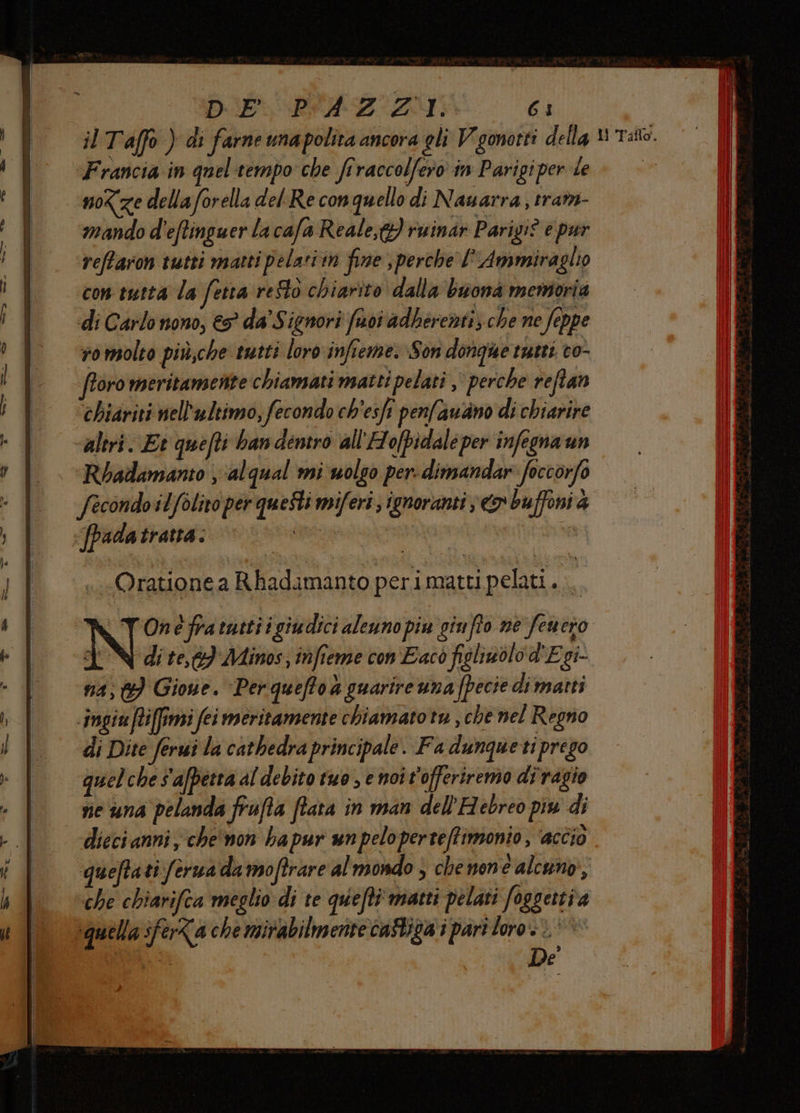 DE' PAZZI. 61
il Tasso ) di farne una polita ancora gli Vgonotti della
Il Tasso.
Francia in quel tempo che si raccolsero in Parigi per le
nozze della sorella del Re con quello di Nauarra, tram-
mando d'estinguer la casa Reale, & ruinar Parigi? e pur
restaron tutti matti pelati in fine, perche l'Ammiraglio
con tutta la setta restò chiarito dalla buona memoria
di Carlo nono, & da' Signori suoi adherenti, che ne seppe
ro molto più, che tutti loro insieme. Son donque tutti co-
storo meritamente chiamati matti pelati, perche restan
chiariti nell'ultimo, secondo ch'essi pensauano di chiarire
altri. Et questi han dentro all'Hospidale per insegna un
Rhadamanto, al qual mi uolgo per dimandar soccorso
secondo il solito per questi miseri, ignoranti, & buffoni à
spada tratta.
Oratione a Rhadamanto per i matti pelati.
NOn è fra tutti i giudici alcuno piu giusto ne seuero
di te, & Minos, insieme con Eaco figliuolo d'Egi-
na, & Gioue. Per questo à guarire una specie di matti
ingiustissimi sei meritamente chiamato tu, che nel Regno
di Dite serui la cathedra principale. Fa dunque ti prego
quel che s'aspetta al debito tuo, e noi t'offeriremo di ragio
ne una pelanda frusta stata in man dell'Hebreo piu di
dieci anni, che non ha pur un pelo per testimonio, acciò
questa ti serua da mostrare al mondo, che non è alcuno,
che chiarisca meglio di te questi matti pelati soggetti a
quella sferza che mirabilmente castiga i pari loro.
De'